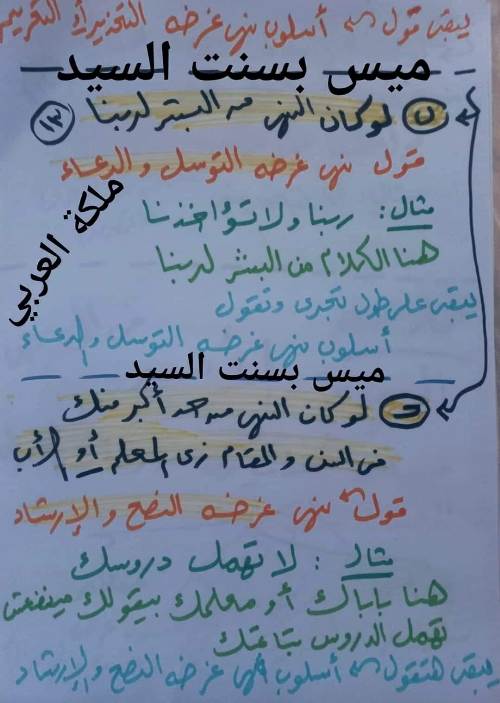 يبقى قول أسلوب نهى غرضه التحذير أو التقريع
ميس بسنت السيد
ن لو كان النهى من البشر لربنا ١٣
قول نهى غرضه التوسل والدعاء
مثال: ربنا ولا تؤاخذنا
هنا الكلام من البشر لربنا
ملكة العربي
يبقى على طول تجرى وتقول
أسلوب نهى غرضه التوسل والدعاء
ميس بسنت السيد
لو كان النهى من حد أكبر منك
فى السن والمقام زى المعلم أو الأب
قول نهى غرضه النصح والإرشاد
مثال: لا تهمل دروسك
هنا باباك أو معلمك بيقولك مينفعش
تهمل الدروس بتاعتك
يبقى هتقول أسلوب نهى غرضه النصح والإرشاد